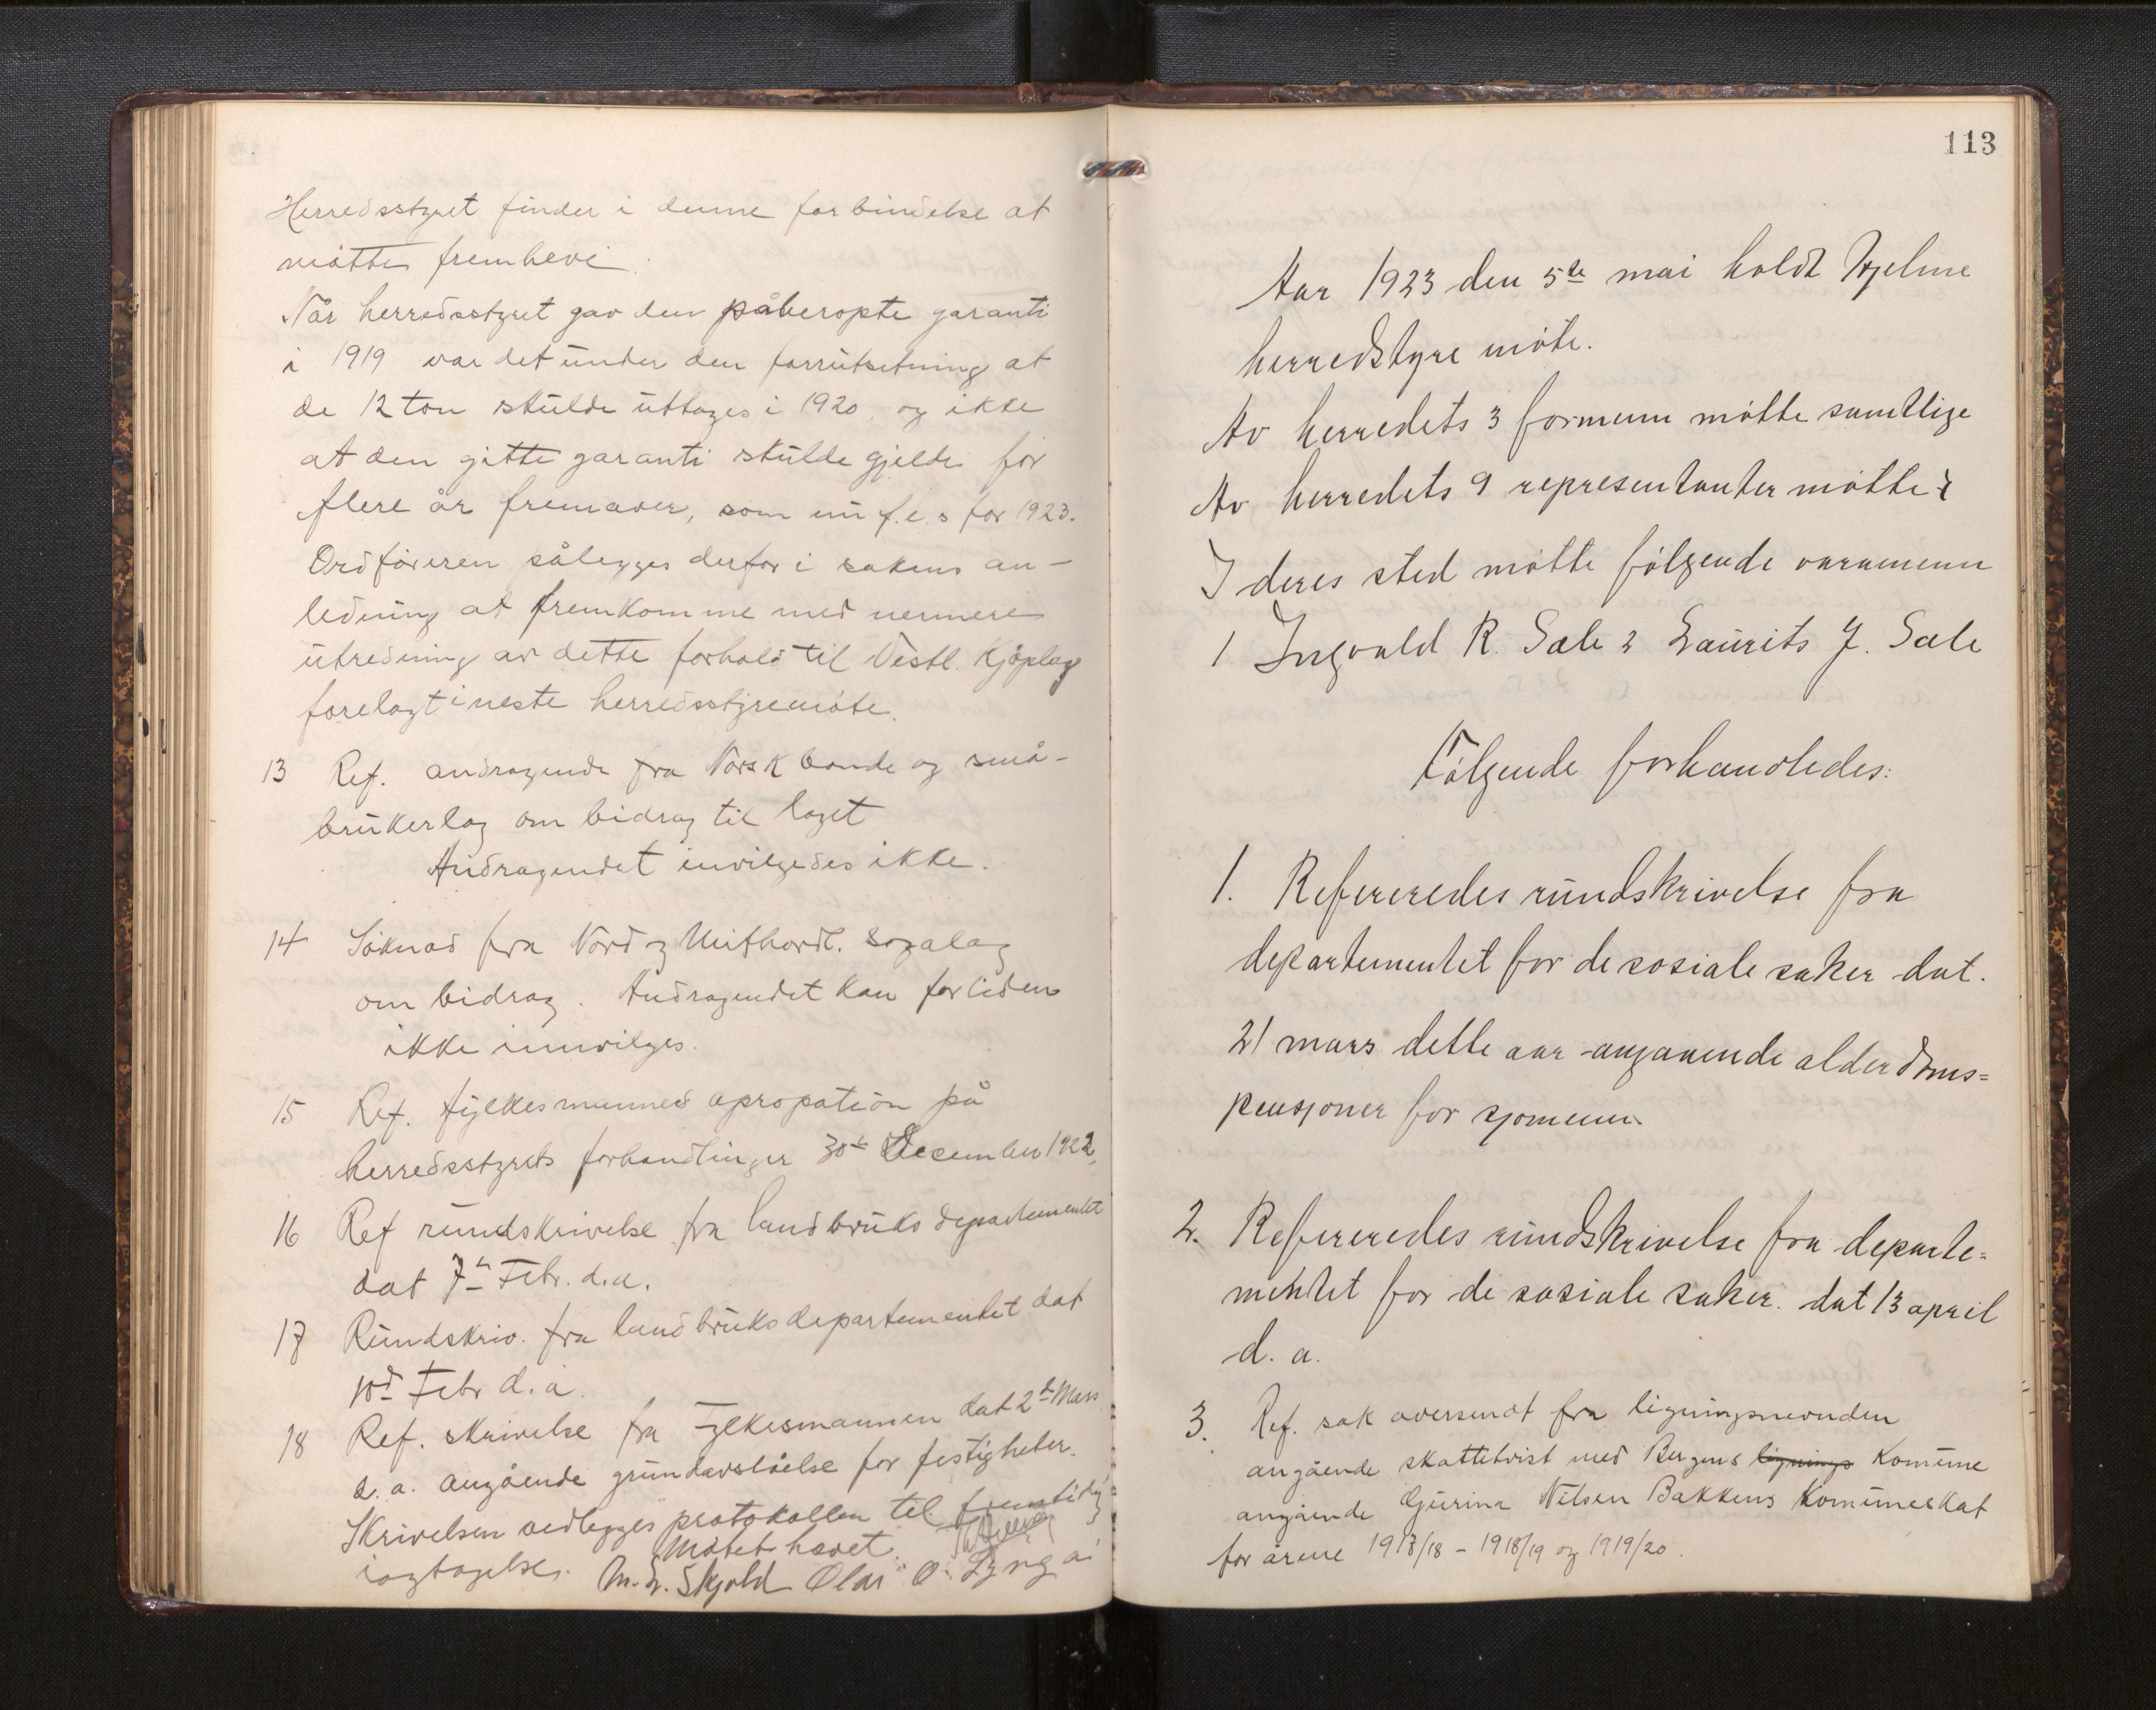 Herredsstyret finder i denne forbindelse at
måtte fremheve:
Når herredsstyret gav den påberopte garanti
i 1919 var det under den forrutsetning at
de 12 ton skulde uttages i 1920, og ikke
at den gitte garanti skulde gjelde for
flere år fremaver, som nu f.e.s for 1923.
Ordføreren pålegges derfor i sakens an-
ledning at fremkomme med nermere
utredning av dette forhold til Vestl. Kjøplag
forelagt i neste herredsstyremøte.
13 Ref. andragende fra Norsk bonde og små-
brukerlag om bidrag til laget
Andragendet invilgedes ikke.
14 Søknad fra Nord og Mithordl. sogalag
om bidrag. Andragendet kan for tiden
ikke innvilges.
15 Ref. fylkesmannes apropation på
herredsstyrets forhandlinger 30te Desember 1922.
16 Ref rundskrivelse fra landbruks departementet
dat 7de Febr. d.a.
17 Rundskriv. fra landbruksdepartementet dat
10d Febr d.a.
18 Ref. skrivelse fra Fylkesmannen dat 2de Mars
d.a. angående grundavståelse for festigheter.
Skrivelsen vedlegges protokollen til fremtidig
iagtagelse. Møtet hævet.
M. L. Skjold Olai O. Lyngø
113
Aar 1923 den 5te mai holdt Hjelme
herredstyre møte.
Av herredets 3 formenn møtte samtlige
Av herredets 9 representanter møtte
I deres sted møtte følgende varamenn
1 Ingvald R. Sæle 2 Laurits J. Sæle
Følgende forhandledes:
1. Refereredes rundskrivelse fra
departementet for de sosiale saker dat.
21 mars dette aar angaaende alderdoms=
pensjoner for sjømenn.
2. Refereredes rundskrivelse fra departe=
mentet for de sosiale saker. dat 13 april
d. a.
3. Ref. sak oversendt fra ligningsnevnden
angående skattetvist med Bergens lignings Komune
angående Gjurina Nilsen Bakkens Komuneskat
for årene 1917/18 - 1918/19 og 1919/20.